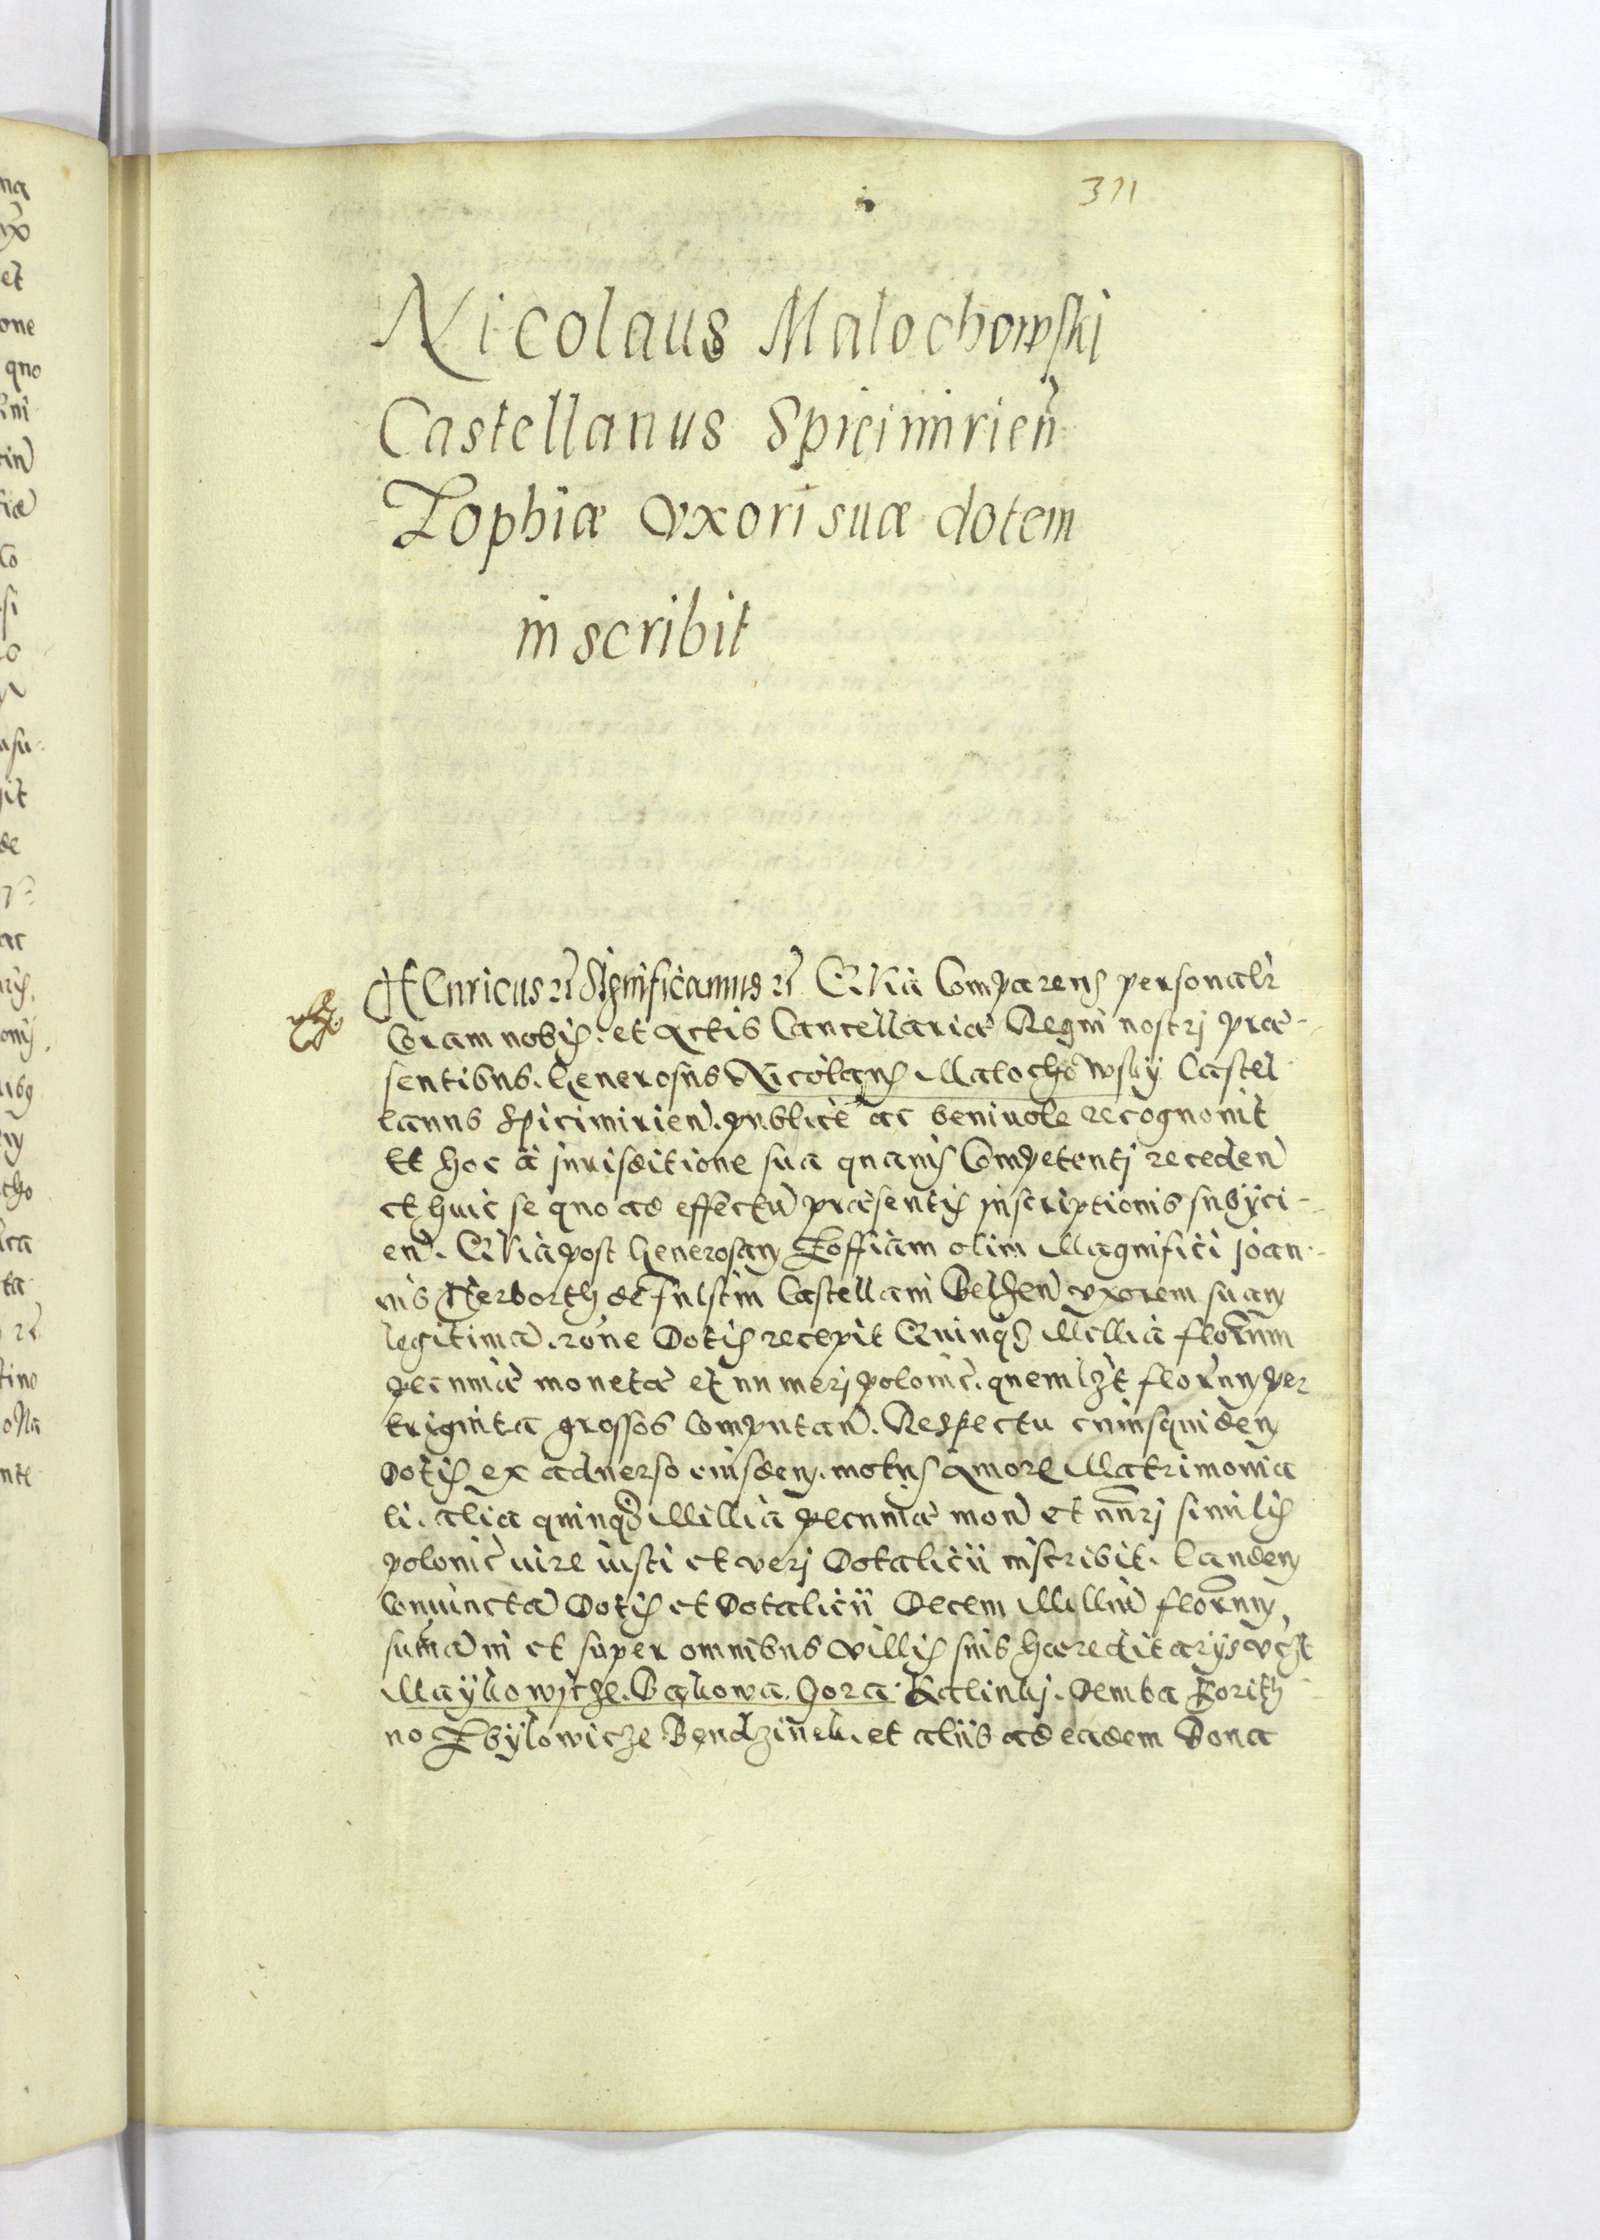 311
Nicolaus Malochowski
Castellanus Spicimirien
Zophiæ vxori suæ dotem
inscribit
Henricus etc Significamus etc Quia Comparens personalr
Coram nobis. et Actis Cancellariæ Regni nostrj præ-
sentibus. Generosus Nicolaus Malochowsky Castel
lanus Spicimirien. publice ac beniuole recognouit
Et hoc a jurisditione sua quauis Competentj receden
et huic se quo ad effectu præsentis inscriptionis subÿci-
en. Quia post Generosam Zoffiam olim Magnifici Joan-
nis Herborth de Fulstin Castellani Belzen vxorem suam
legitima. rone Dotis recepit Quinq Millia florenum
pecuniæ monetæ et numerj polonic. quemlzt florenum per
triginta grossos Computan. Respectu cuiusquidem
Dotis ex aduerso eiusdem. motus Amore Matrimonia
li. alia quinq Millia pecuniæ mon et nnrj similis
polonic uire iusti et verj Dotalicii inscribit. Eandem
Coniuncta Dotis et Dotalicii Decem Milliu florenum
suma in et super omnibus Villis suis hæreditarÿs vczt
Maÿkowicze. Bakowa. Gora. Kalinkj. Demba Korith
no Zbÿlowicze Bendzinek. et aliis ad eadem Bona